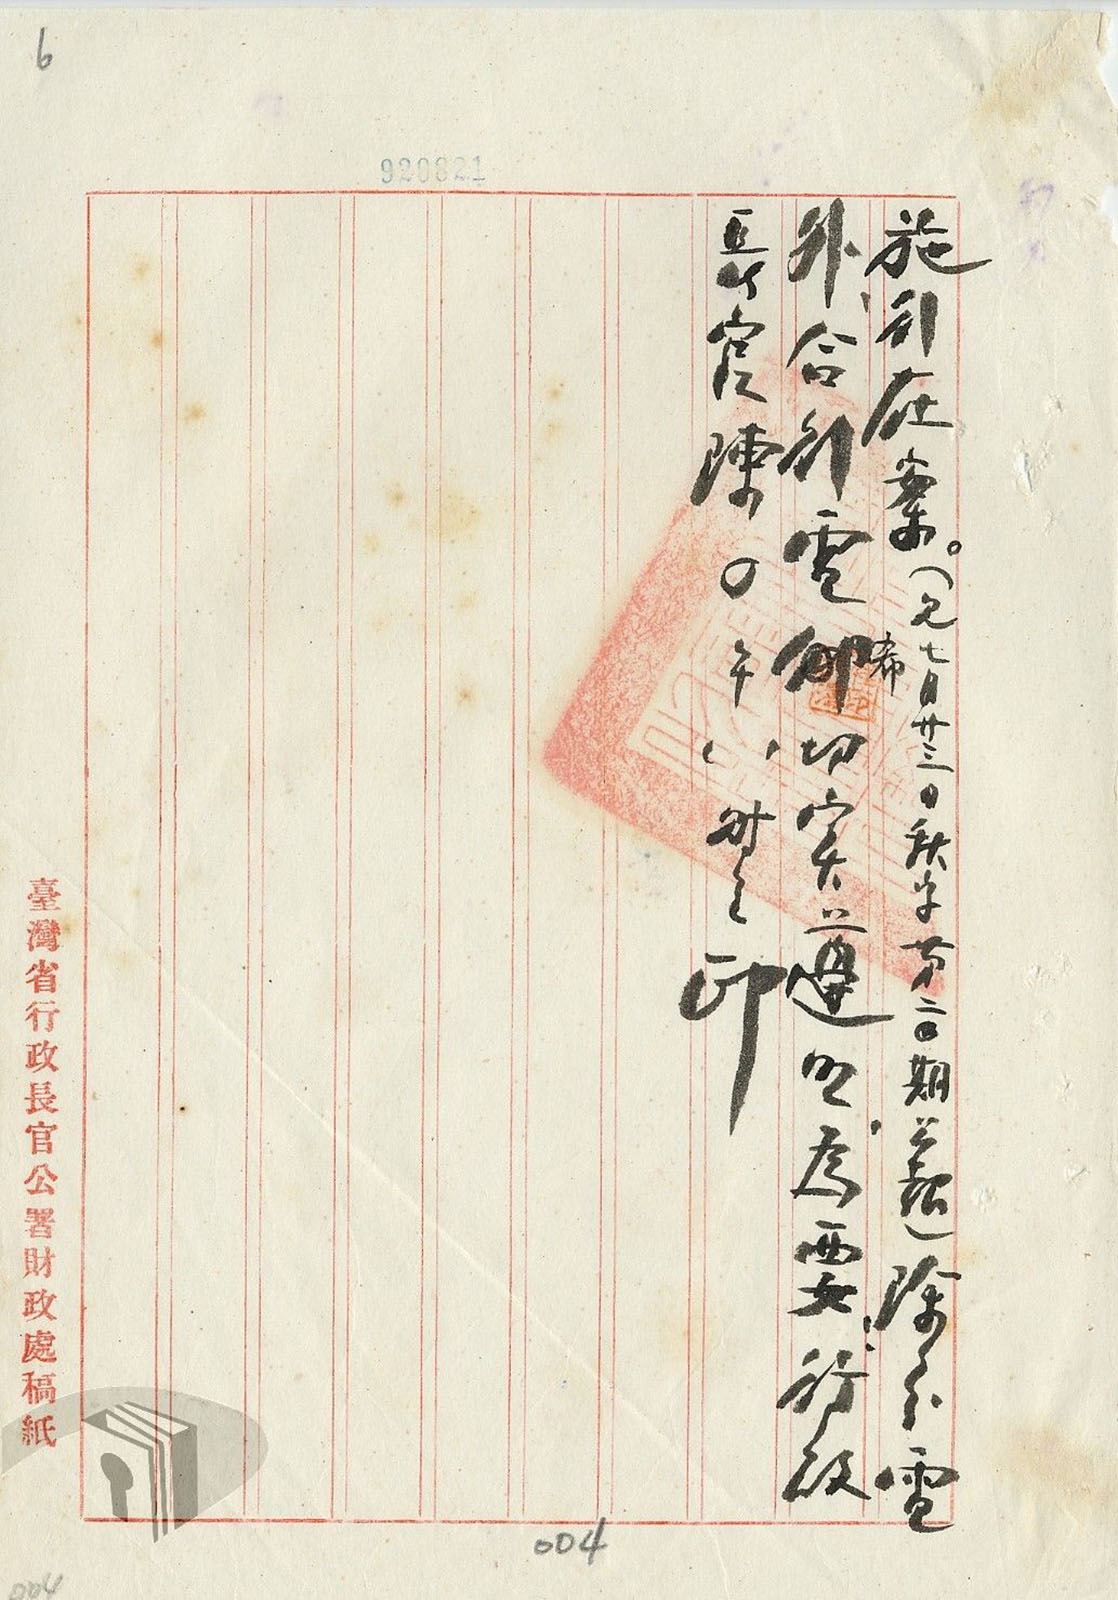 6
920821
施行在案。(見七月廿三日秋字第二〇期公報)除分電
外合行電仰希切实遵照為要
長官陳〇午 財 印
臺灣省行政長官公署財政處稿紙
004
004